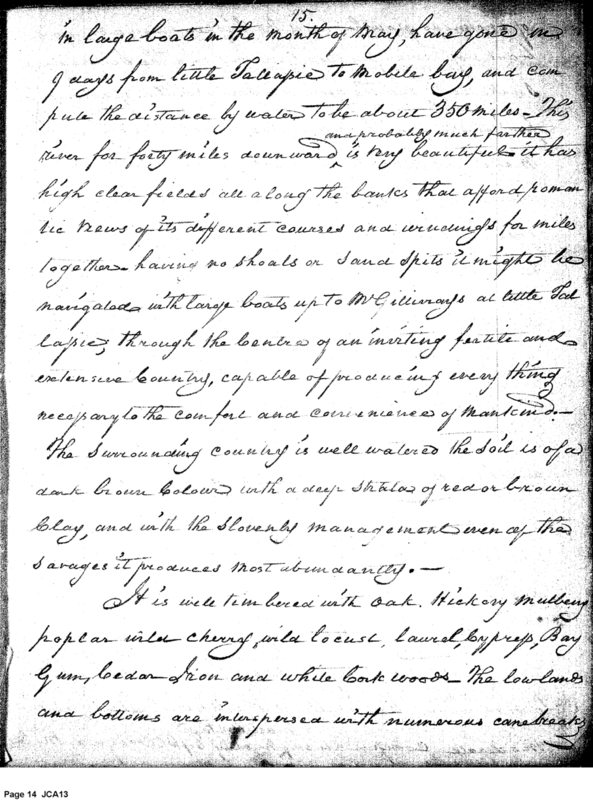 15.
in large boats in the month of May, have gone in
9 days from little Tallapie to Mobile bay, and com
pute the distance by water to be about 350 miles - This
and probably much farther
river for forty miles downward, is very beautiful - it has
high clear fields all along the banks that afford roman
tic views of its different courses and windings for miles
together - having no shoals or sand spits it might be
navigated with large boats up to McGillivrays at little Tal
lasie, through the Centre of an inviting fertile and
extensive Country, capable of producing every thing
necessary to the comfort and convenience of mankind. -
The surrounding country is well watered the soil is of a
dark brown Colour with a deep strata of red or brown
Clay, and with the slovenly management even of the
savages it produces most abundantly. -
It is well timbered with oak. Hickory Mulberry
poplar wild cherry, wild locust, laurel, Cypress, Bay
Gum, Cedar Iron and white Cork woods - The low lands
and bottoms are interspersed with numerous canebreaks
Page 14 JCA13